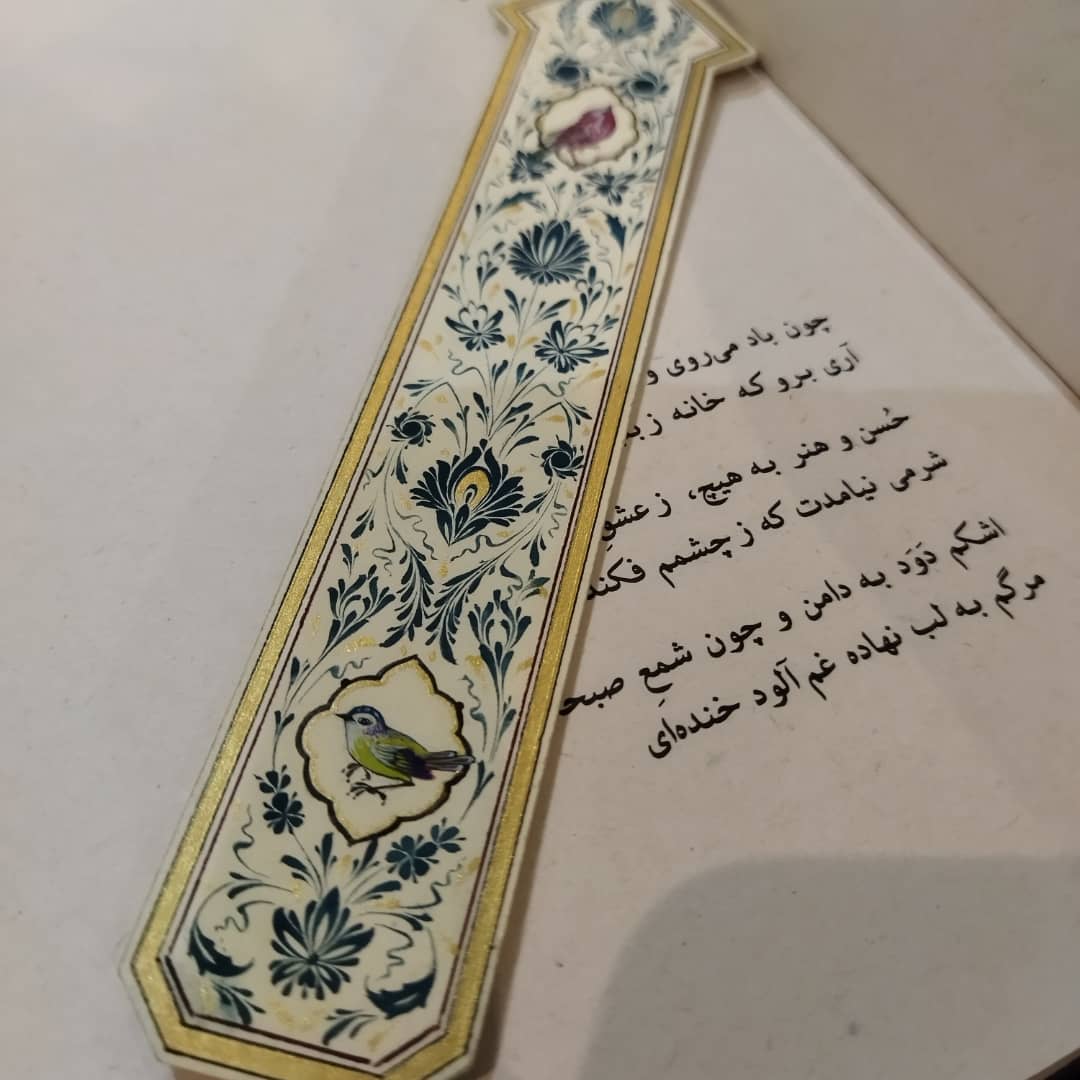 چون باد می‌روی و
آری برو که خانه ز
حُسن و هنر به هیچ، ز عشقِ
شرمی نیامدت که ز چشمم فکند
اشکم دَوَد به دامن و چون شمعِ صبح
مرگم به لب نهاده غم آلود خنده‌ای